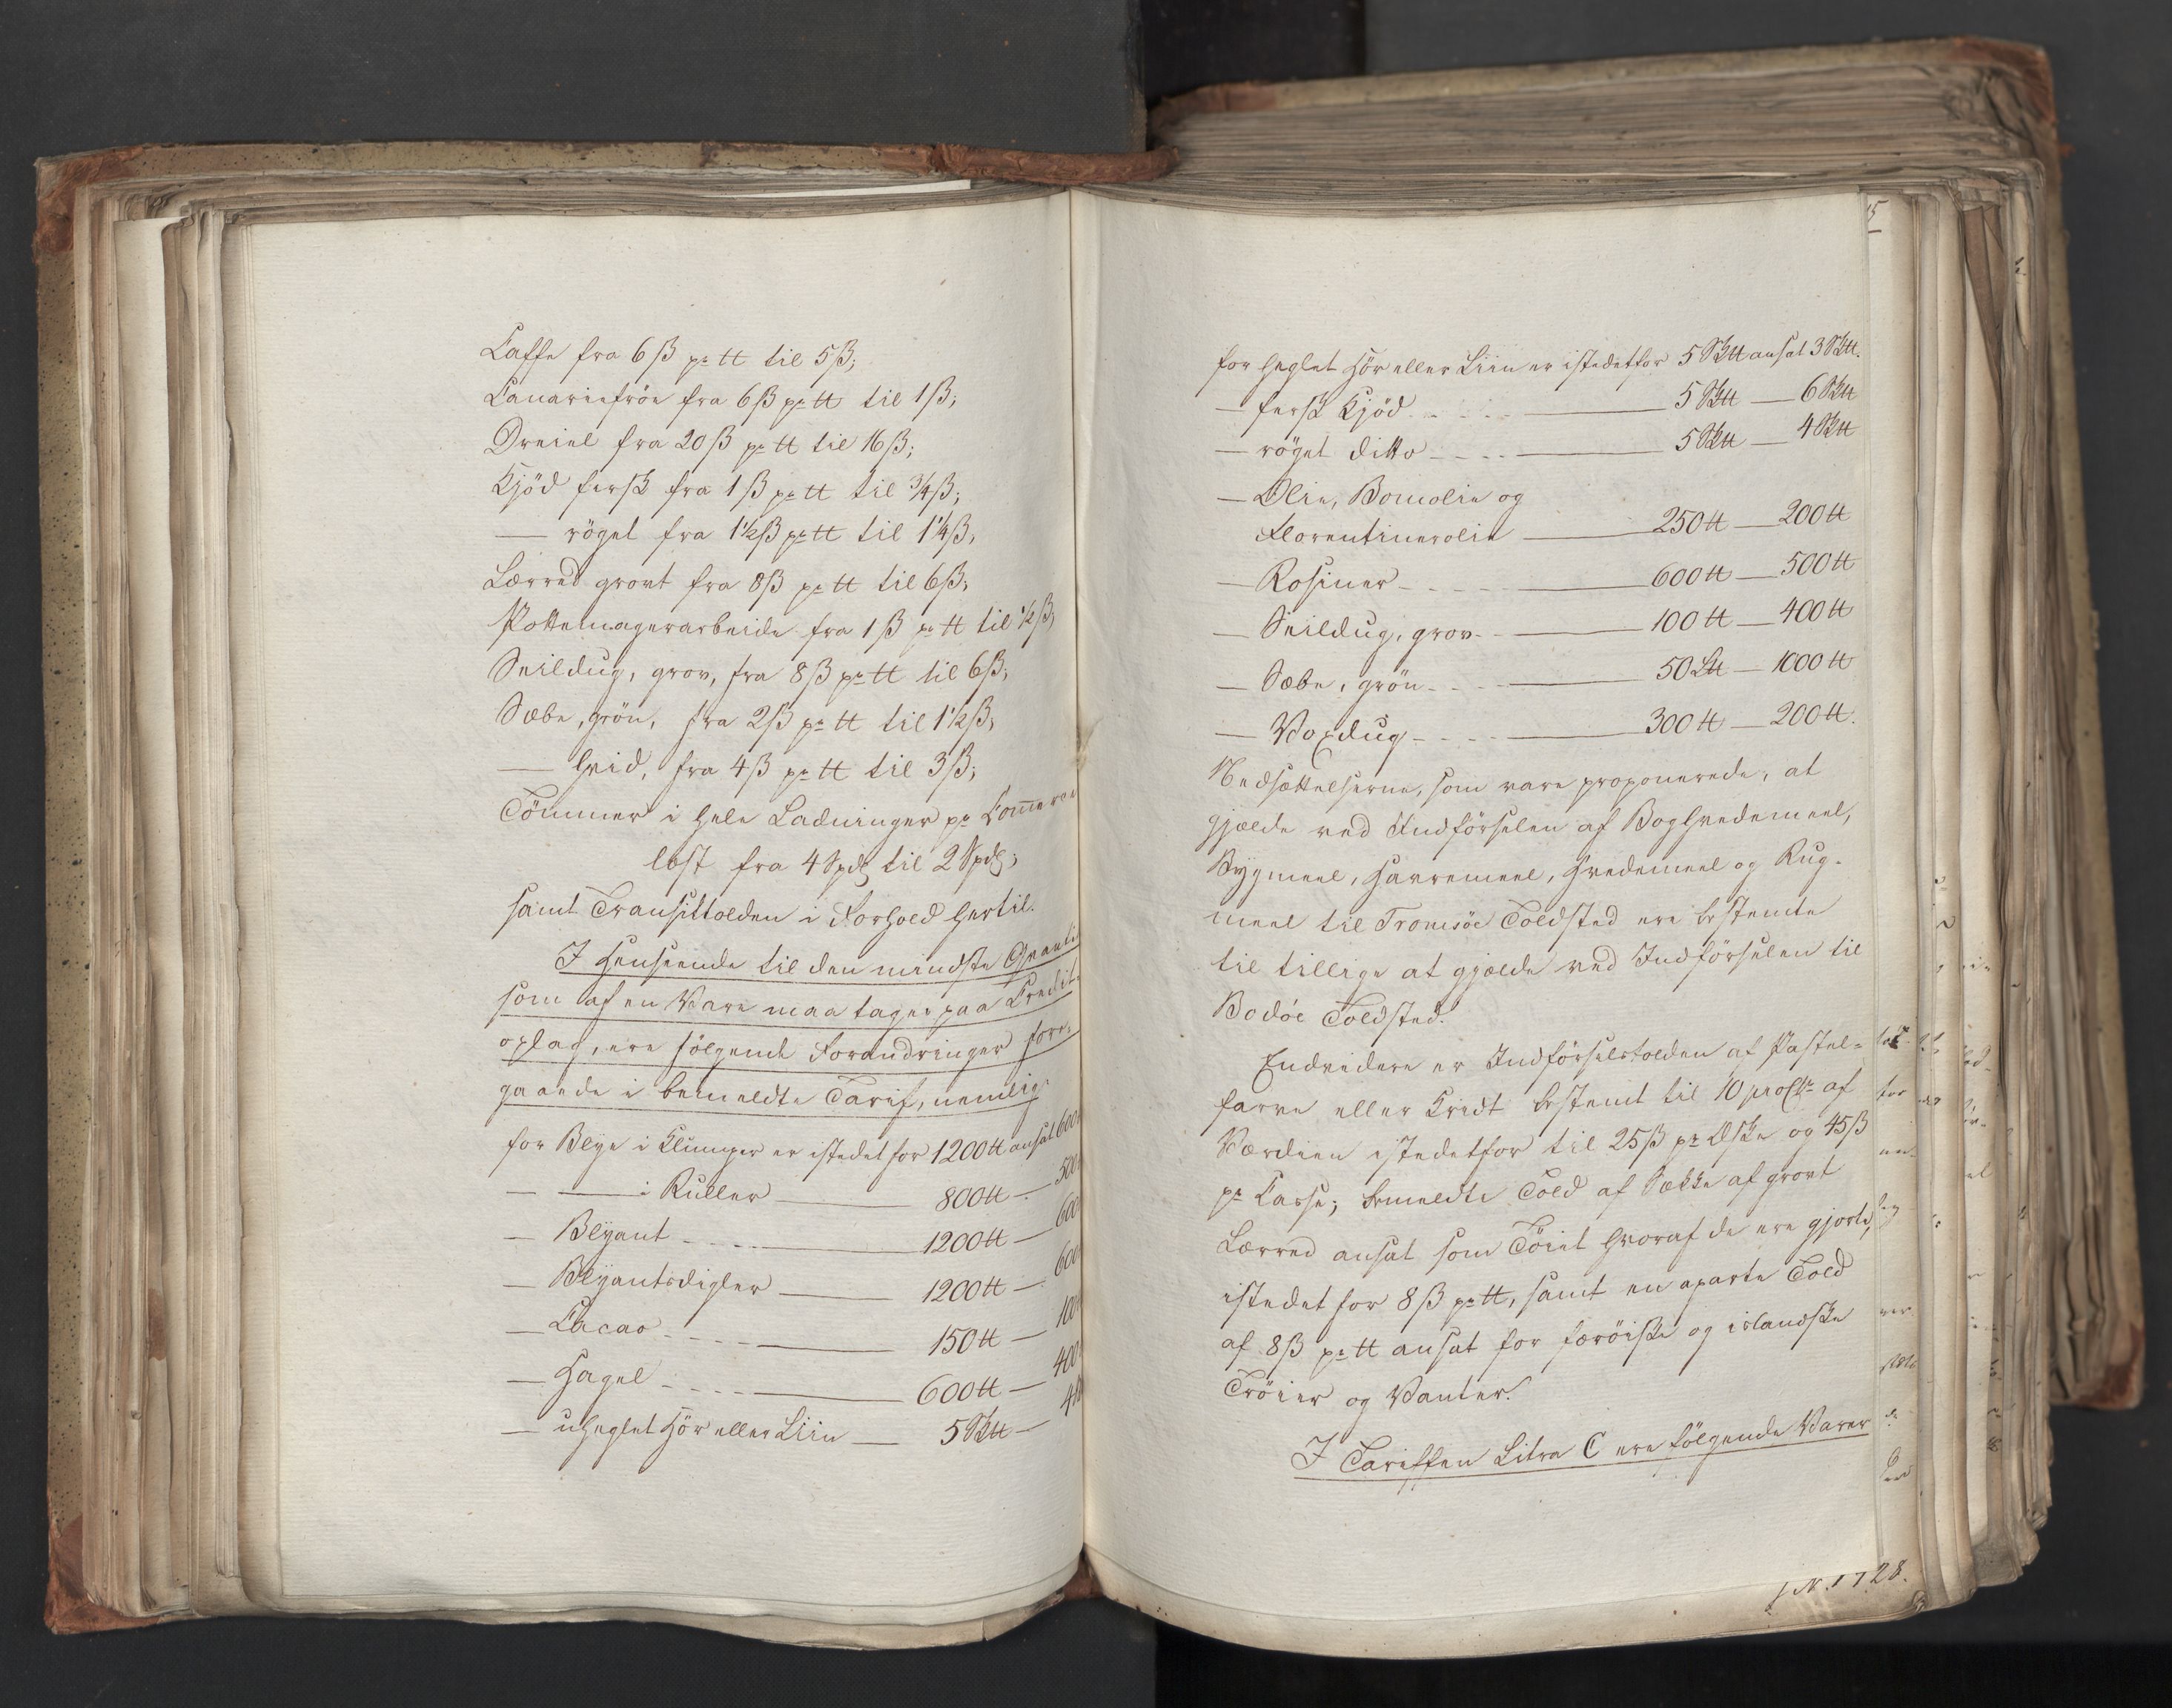 Caffe fra 6 ß pr ℔ til 5 ß;
Canariefröe fra 6 ß pr ℔ til 1 ß;
Dreiel fra 20 ß pr ℔ til 16 ß;
Kjöd fersk fra 1 ß pr ℔ til ¾ ß;
— röget fra 1½ ß pr ℔ til 1¼ ß,
Lærred grovt fra 8 ß pr ℔ til 6 ß;
Pottemagerarbeide fra 1 ß pr ℔ til ½ ß;
Seildug, grov, fra 8 ß pr ℔ til 6 ß;
Sæbe, grön, fra 2 ß pr ℔ til 1½ ß;
— hvid, fra 4 ß pr ℔ til 3 ß;
Tömmer i hele Ladninger pr Commerce
læst fra 4 Spd til 2 Spd;
samt Transittolden i Forhold hertil.
I Henseende til den mindste Qvanti
som af en Vare maa tages paa Credit-
oplag, ere fölgende Forandringer fore-
gaaende i bemeldte Tarif, nemlig:
for Blye i Klumper er istedet for 1200 ℔ ansat 600
— — i Ruller — 800 ℔ — 500
— Blyant — 1200 ℔ — 600
— Blyantsdigler — 1200 ℔ — 600
— Cacao — 150 ℔ — 100
— Hagel — 600 ℔ — 400
— uheglet Hör eller Liin — 5 Sk℔ — 4
for heglet Hör eller Liin er istedetfor 5 Sk℔ ansat 3 Sk℔.
— fersk Kjöd — 5 Sk℔ — 6 Sk℔
— röget ditto — 5 Sk℔ — 4 Sk℔
— Olie, Bomolie og
Florentinerolie — 250 ℔ — 200 ℔
— Rosiner — 600 ℔ — 500 ℔
— Seildug, grov — 100 ℔ — 400 ℔
— Sæbe, grön — 50 L℔ — 1000 ℔
— Voxdug — 300 ℔ — 200 ℔.
Nedsættelserne, som vare proponerede, at
gjælde ved Indförselen af Boghvedemeel,
Bygmeel, Havremeel, Hvedemeel og Rug-
meel til Tromsöe Toldsted ere bestemte
til tillige at gjælde ved Indförselen til
Bodöe Toldsted.
Endvidere er Indförselstolden af Pastel-
farve eller Kridt bestemt til 10 proCto af
Værdien istedetfor til 25 ß pr Æske og 45 ß
pr Casse; bemeldte Told af Sække af grovt
Lærred ansat som Töiet hvoraf de ere gjorte,
istedet for 8 ß pr ℔, samt en aparte Told
af 8 ß pr ℔ ansat for færöiske og islandske
Tröier og Vanter.
I Tariffen Litra C ere fölgende Varer